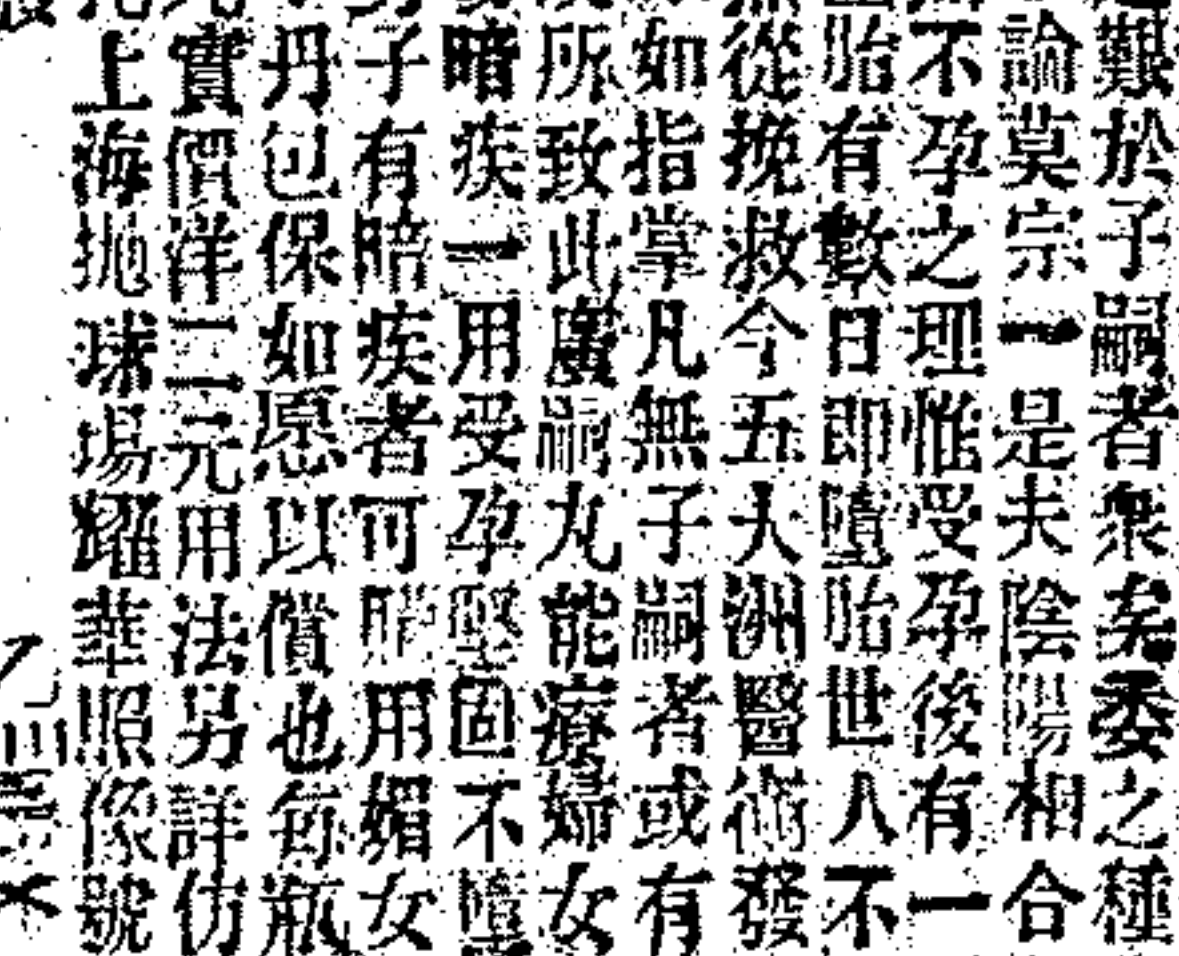 艱於子嗣者衆矣委之種
論莫宗一是夫陰陽相合
不孕之理惟受孕後有一
胎有數日即墮胎世人不
從挽救今五大洲醫術發
如指掌凡無子嗣者或有
所致此廣嗣丸能療婦女
暗疾一用受孕堅固不墮
子有暗疾者可用媚女
丹包保如愿以償也每瓶
實價洋二元用法另詳仿
上海抛球場耀華照像號